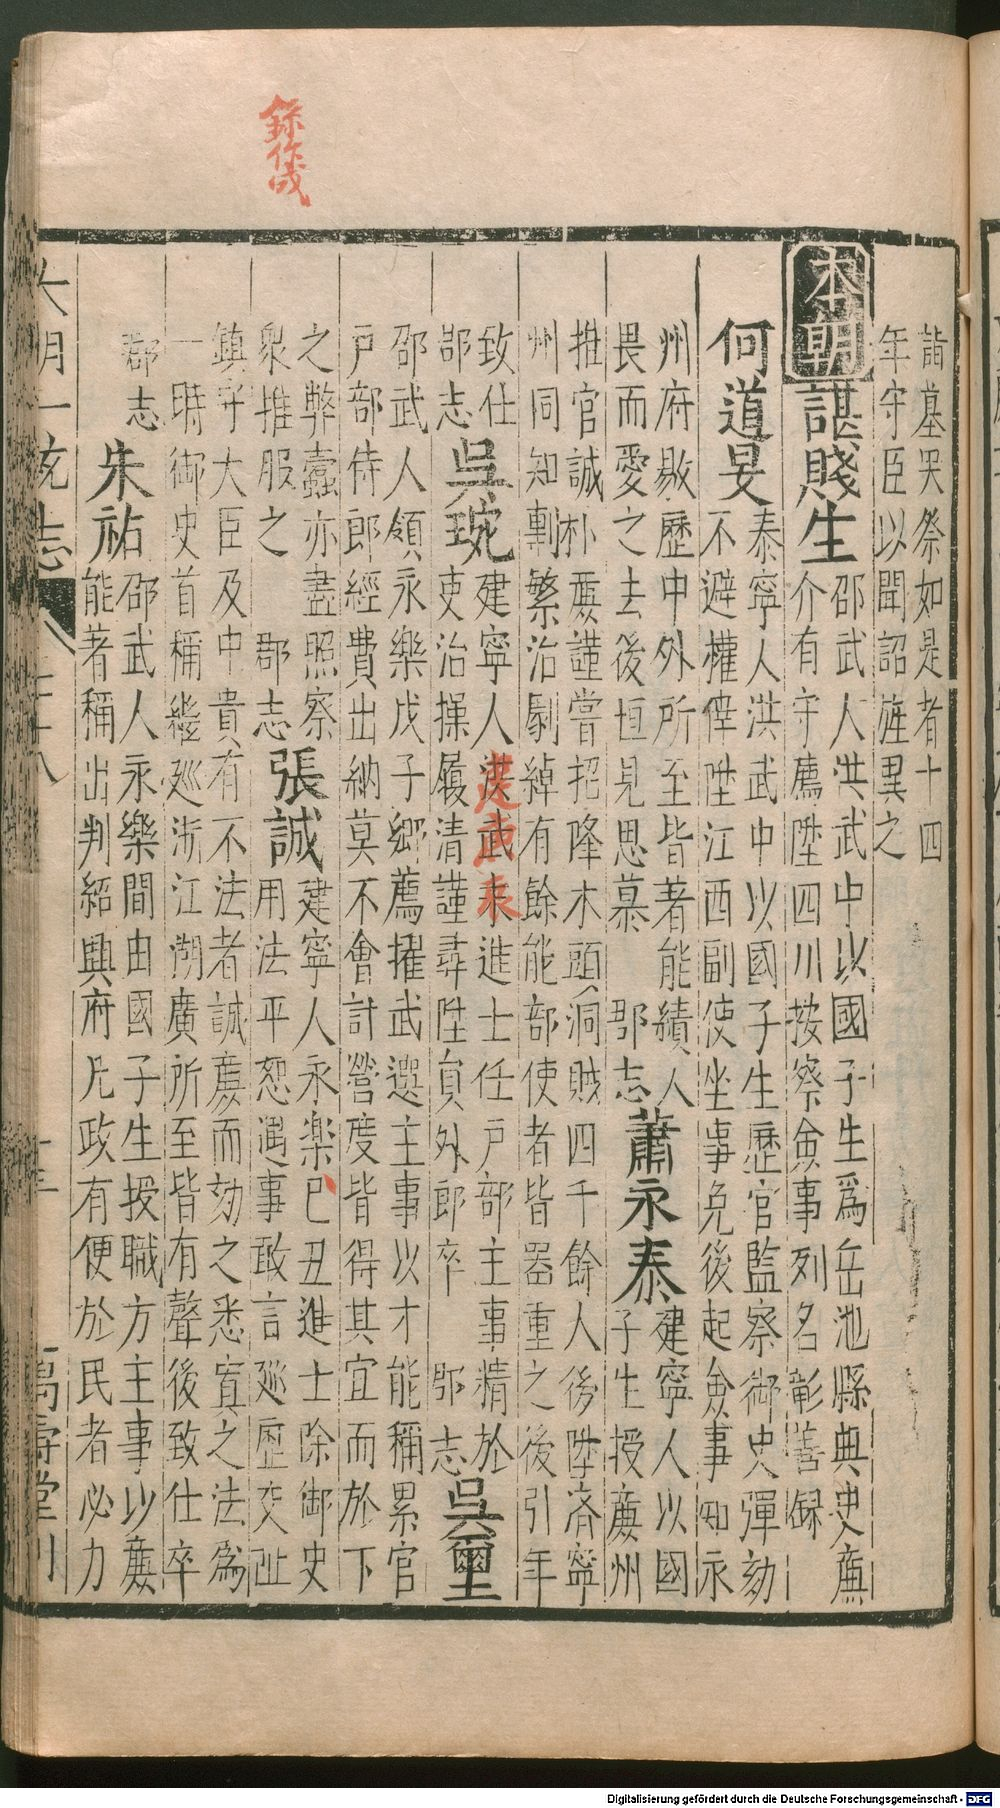 詣墓哭祭如是者十四
年守臣以聞詔旌異之
本朝諶賤生邵武人洪武中以國子生爲岳池縣典史廉
介有守薦陞四川按察僉事列名彰善錄
何道旻泰寧人洪武中以國子生歷官監察御史彈劾
不避權倖陞江西副使坐事免後起僉事知永
州府敭歷中外所至皆著能績人
畏而愛之去後恒見思慕 郡志蕭永泰建寧人以國
子生授廣州
推官誠朴廉謹嘗招降木頭洞賊四千餘人後陞済寧
州同知剸繁治劇綽有餘能部使者皆器重之後引年
致仕
郡志吳琬建寧人洪武末進士任戶部主事精於
吏治操履清謹尋陞員外郎卒 郡志吳璽
邵武人領永樂戊子鄉薦擢武選主事以才能稱累官
戶部侍郎經費出納莫不會計營度皆得其宜而於下
之弊蠹亦盡照察
衆推服之 郡志張誠建寧人永楽己丑進士除御史
用法平恕遇事敢言廵歴交趾
鎮守大臣及中貴有不法者誠廉而劾之悉寘之法爲
一時御史首稱繼廵浙江湖廣所至皆有聲後致仕卒
郡志朱祐邵武人永樂間由國子生授職方主事以廉
能者稱出判紹興府凡政有便於民者必力
大明一統志 十三 萬壽堂刊
建庚辰
錄作成
Digitalisierung gefördert durch die Deutsche Forschungsgemeinschaft - DFG